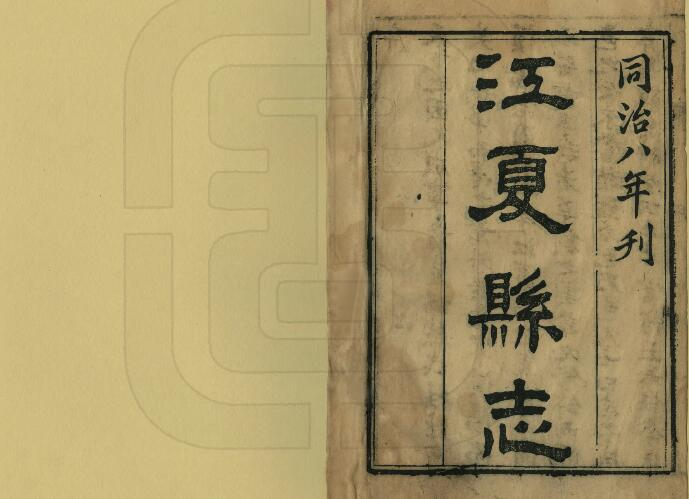 同治八年刋
江夏縣志